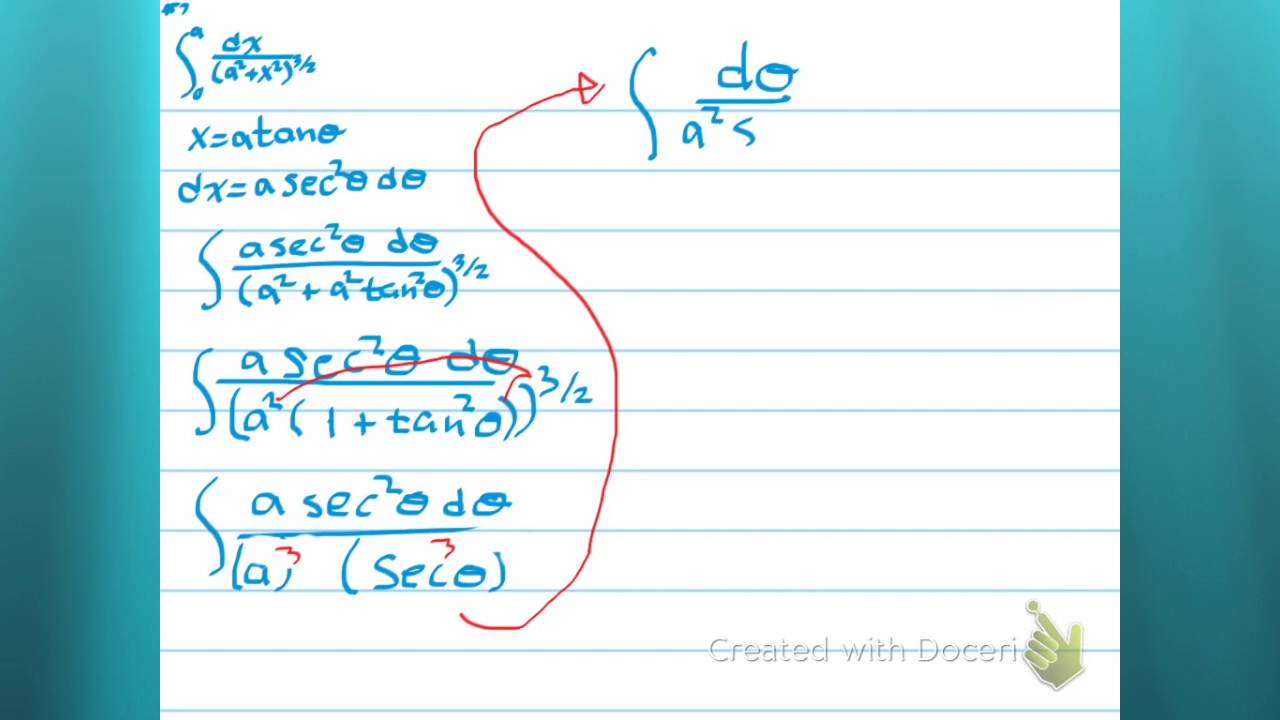 #7
∫₀ᵃ dx/(a²+x²)^3/2
x=atanθ
dx=a sec²θ dθ
∫ a sec²θ dθ/(a²+a²tan²θ)^3/2
∫ a sec²θ dθ/(a²(1+tan²θ))^3/2
∫ a sec²θ dθ/(a)³ (sec³θ)
∫ dθ/a² s
Created with Doceri